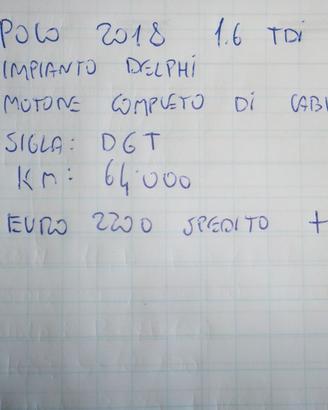 POLO 2018 1.6 TDi
IMPIANTO DELPHi
MOTORE COMPLETO Di CABL
SIGLA: DGT
KM: 64'000
EURO 2200 SPEDITO +